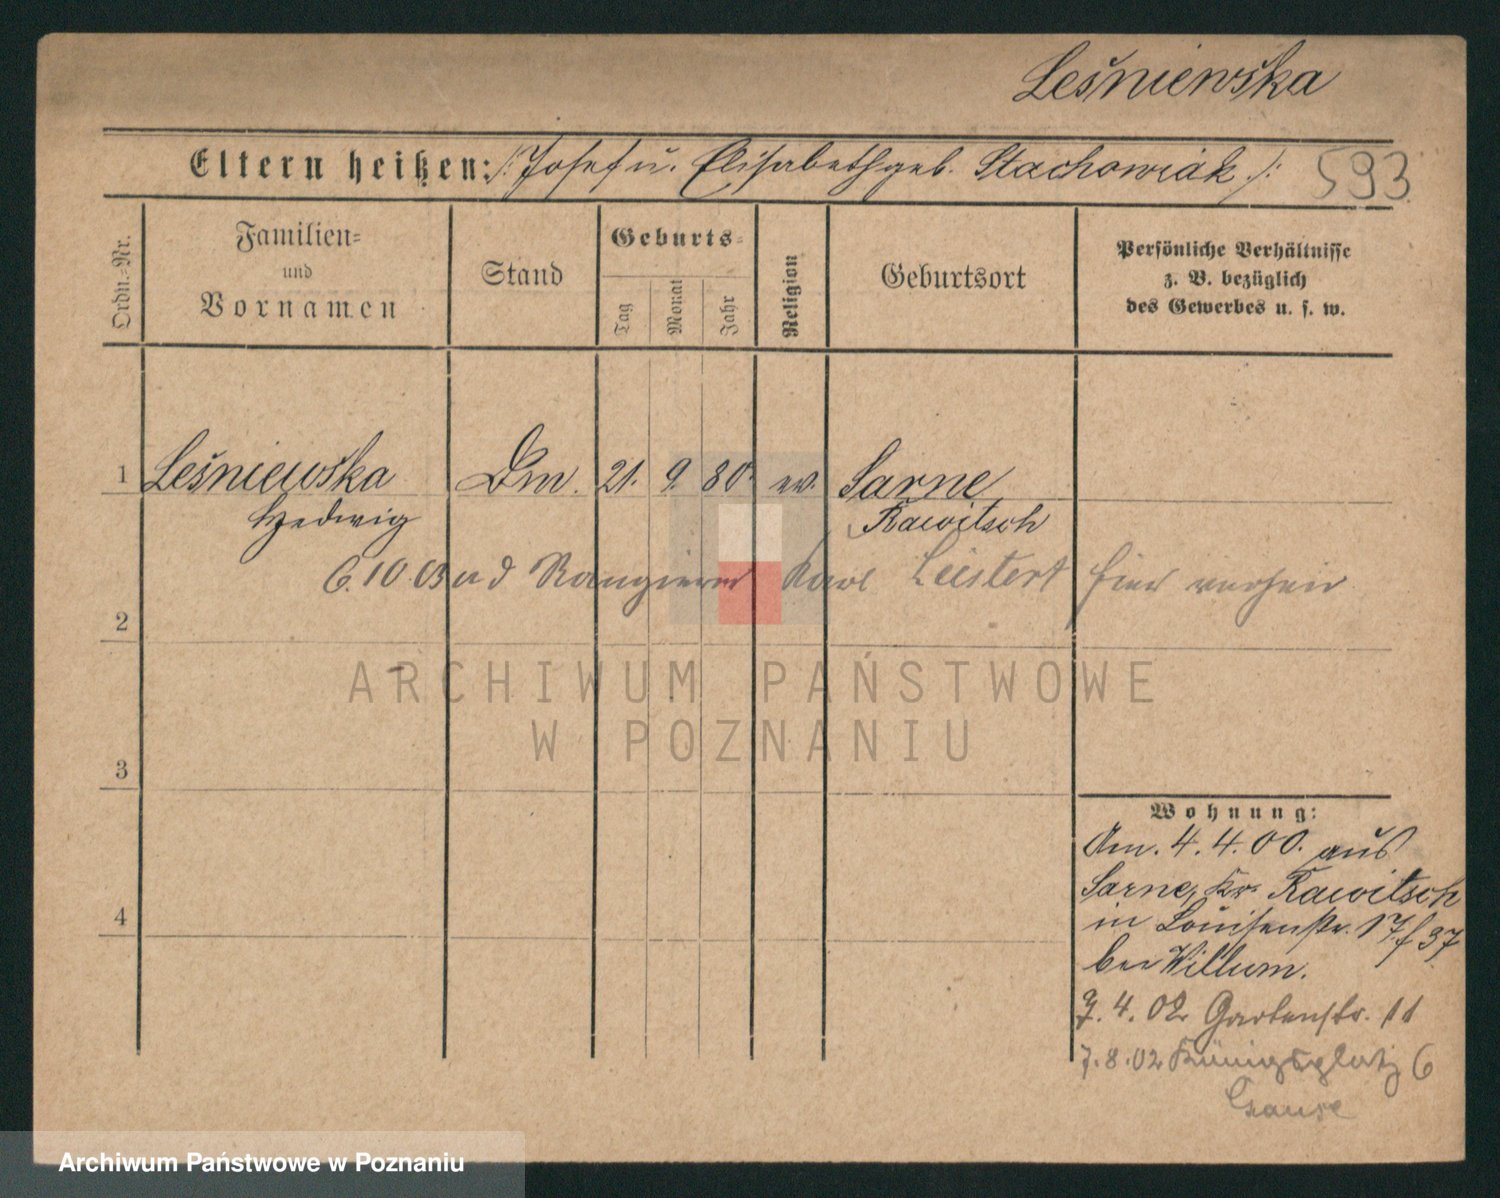 Leśniewska
Eltern heißen: /: Josef u. Elisabeth geb. Stachowiak. :/ 593
Ordn.-Nr.
Familien-
und
Vornamen
Stand
Geburts-
Tag
Monat
Jahr
Religion
Geburtsort
Persönliche Verhältnisse
z. B. bezüglich
des Gewerbes u. s. w.
1 Leśniewska Dm. 21. 9. 80. ev. Sarne
Hedwig Rawitsch
6.10.03 Rangierer Karl Leistert hier verheir
2
3
4
Wohnung:
Am. 4. 4. 00. aus
Sarne, Kr. Rawitsch
in Louisenstr. 17/37
bei Willum.
7. 4. 02 Gartenstr. 11
7. 8. 02 Königsplatz 6
ARCHIWUM PAŃSTWOWE
W POZNANIU
Archiwum Państwowe w Poznaniu